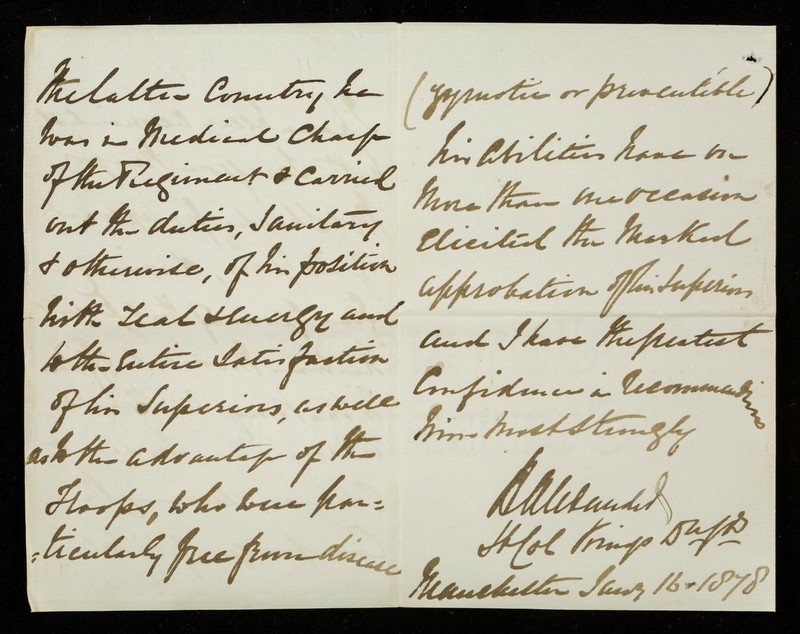 the latter Country he
was in Medical Charge
of the Regiment & carried
out the duties, Sanitary
& otherwise, of his position
with zeal & energy and
to the entire Satisfaction
of his Superiors, as well
as to the advantage of the
Troops, who were par=
=ticularly free from disease
(zymotic or preventible)
his abilities have on
More than one occasion
Elicited the Marked
approbation of his Superiors
and I have the greatest
Confidence in recommending
him most strongly
Alexander
Lt Col Kings D Gds
Manchester Jany 16. 1878